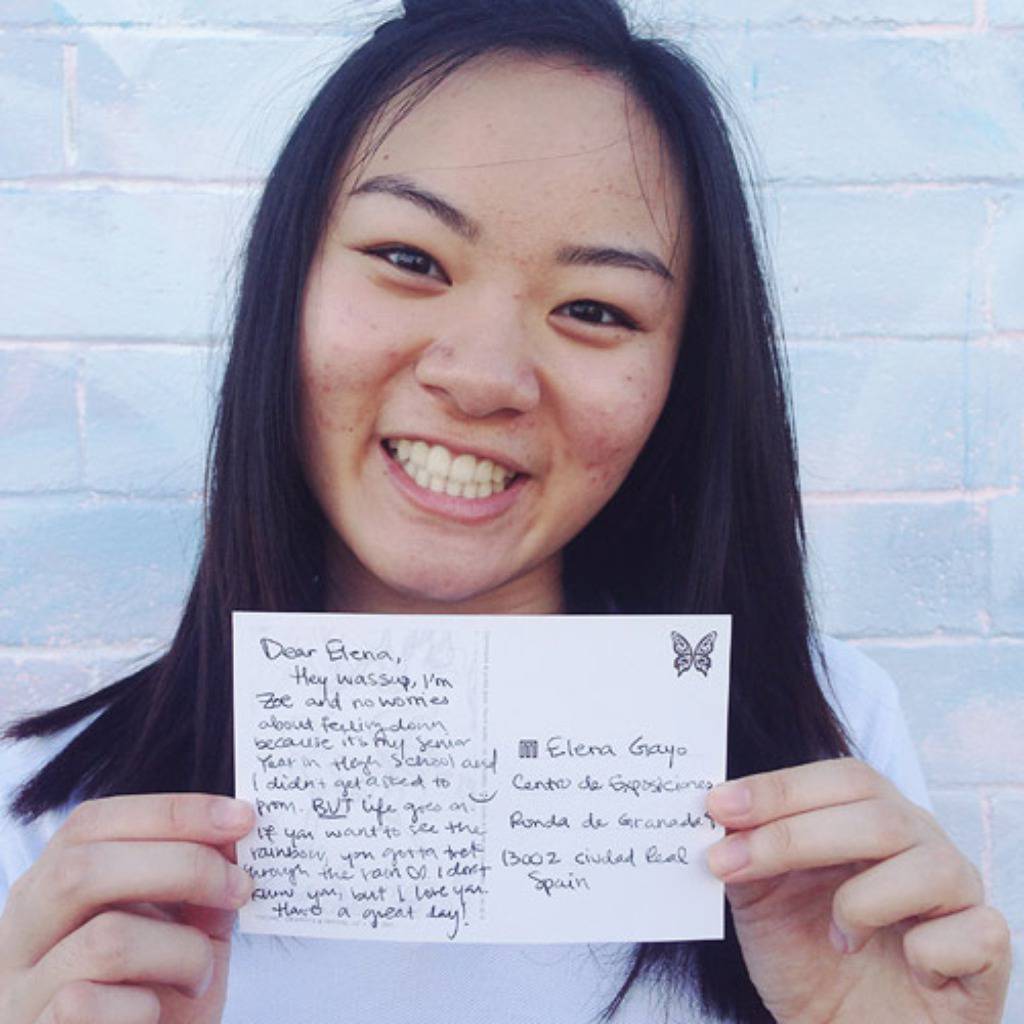 Dear Elena,
Hey wassup, I'm
Zoe and no worries
about feeling down
because it's my Senior
Year in High School and
I didn't get asked to
prom. BUT life goes on.
If you want to see the
rainbow, you gotta trek
through the rain I don't
know you, but I love you.
Have a great day!
Elena Gayo
Centro de Exposiciones
Ronda de Granada
13002 Ciudad Real
Spain